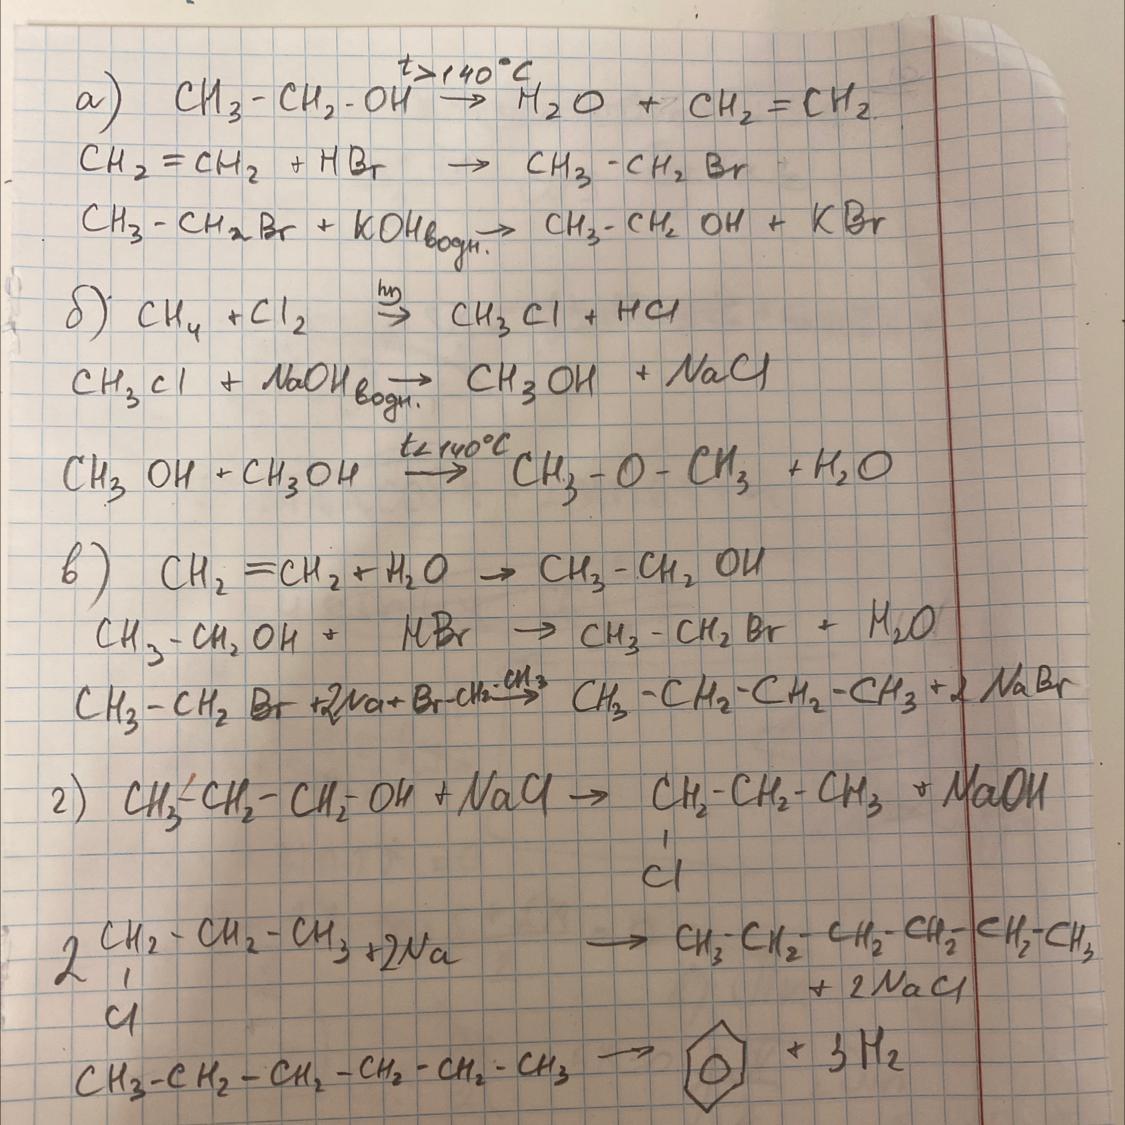 t>140°C
а) CH3-CH2-OH → H2O + CH2=CH2
CH2=CH2 + HBr → CH3-CH2Br
CH3-CH2Br + KOHводн. → CH3-CH2OH + KBr
б) CH4 + Cl2 hν→ CH3Cl + HCl
CH3Cl + NaOHводн. → CH3OH + NaCl
t<140°C
CH3OH + CH3OH → CH3-O-CH3 + H2O
в) CH2=CH2 + H2O → CH3-CH2OH
CH3-CH2OH + HBr → CH3-CH2Br + H2O
CH3-CH2Br + 2Na + Br-CH2-CH3 → CH3-CH2-CH2-CH3 + 2NaBr
г) CH3-CH2-CH2-OH + NaCl → CH2-CH2-CH3 + NaOH
Cl
2 CH2-CH2-CH3 + 2Na → CH3-CH2-CH2-CH2-CH2-CH3
+ 2NaCl
Cl
CH3-CH2-CH2-CH2-CH2-CH3 → + 3H2